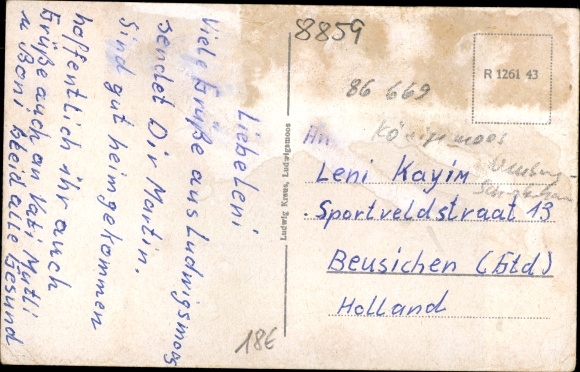 Liebe Leni
Viele Grüße aus Ludwigsmoos
sendet Dir Martin.
Sind gut heimgekommen
hoffentlich ihr auch
Grüße auch an Vati Mutti
u Boni bleid alle Gesund
Ludwig Kraus, Ludwigsmoos
8859
R 1261 43
86 669
Königsmoos
An
Leni Kayim
Sportveldstraat 13
Beusichen (Gld)
Holland
18€